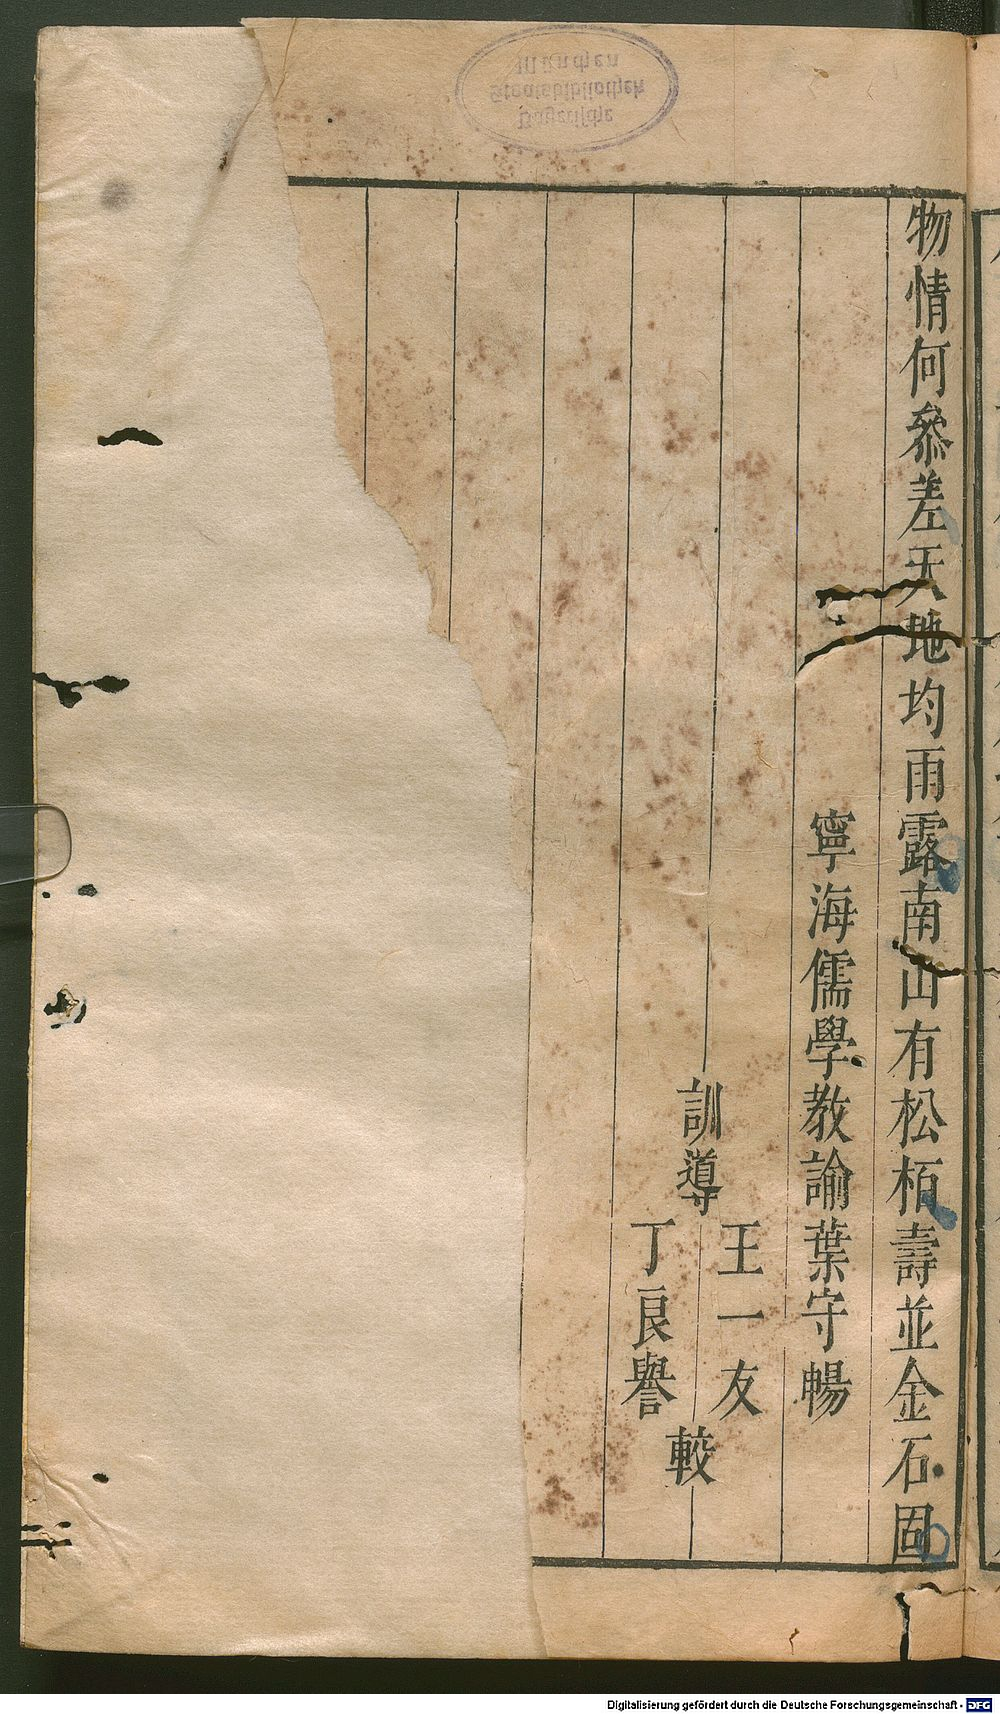 物情何叅差天地均雨露南山有松栢壽並金石固
寧海儒學教諭葉守暢
訓導
王一友
丁良譽
較
Bayerische
Staatsbibliothek
München
Digitalisierung gefördert durch die Deutsche Forschungsgemeinschaft - DFG